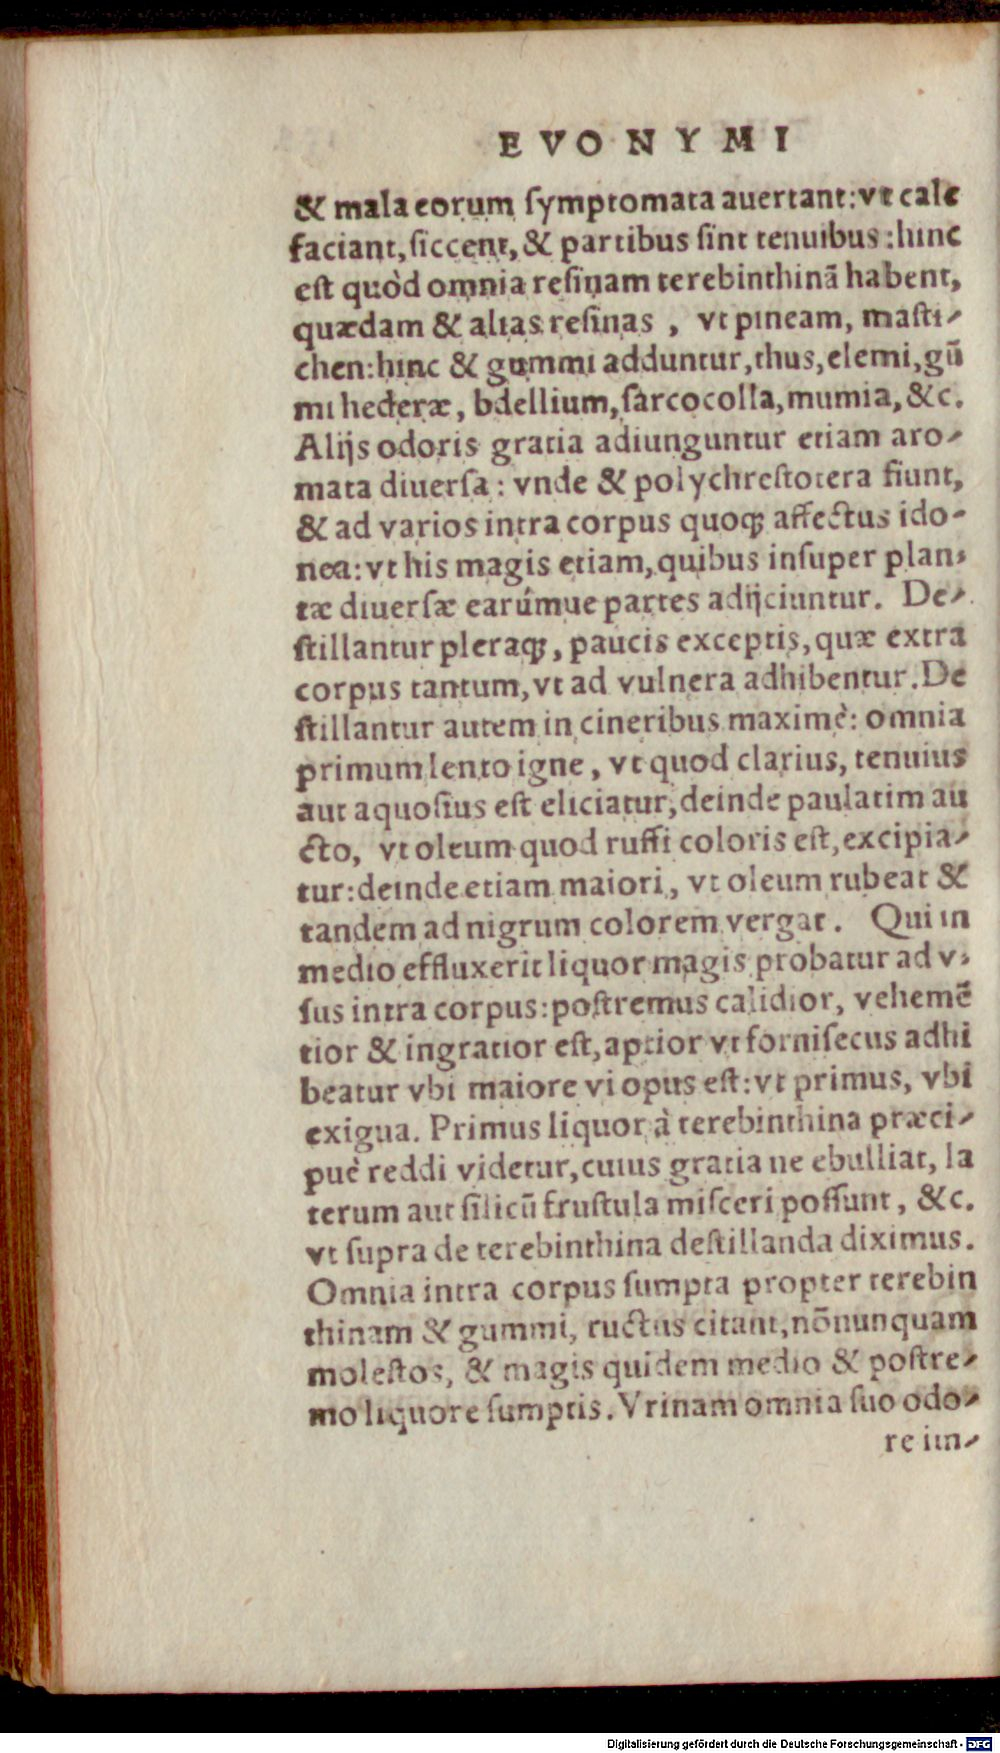 EVONYMI
& mala eorum ſymptomata auertant: vt cale
faciant, ſiccent, & partibus ſint tenuibus: hinc
eſt quòd omnia reſinam terebinthinã habent,
quædam & alias reſinas, vt pineam, maſti-
chen: hinc & gummi adduntur, thus, elemi, gũ
mi hederæ, bdellium, ſarcocolla, mumia, &c.
Alijs odoris gratia adiunguntur etiam aro-
mata diuerſa: vnde & polychreſtotera fiunt,
& ad varios intra corpus quoqꝫ affectus ido-
nea: vt his magis etiam, quibus inſuper plan-
tæ diuerſæ earúmue partes adijciuntur. De-
ſtillantur pleraqꝫ, paucis exceptis, quæ extra
corpus tantum, vt ad vulnera adhibentur. De
ſtillantur autem in cineribus maximè: omnia
primum lento igne, vt quod clarius, tenuius
aut aquoſius eſt eliciatur, deinde paulatim au
cto, vt oleum quod ruffi coloris eſt, excipia-
tur: deinde etiam maiori, vt oleum rubeat &
tandem ad nigrum colorem vergat. Qui in
medio effluxerit liquor magis probatur ad v-
ſus intra corpus: poſtremus calidior, vehemẽ
tior & ingratior eſt, aptior vt forniſecus adhi
beatur vbi maiore vi opus eſt: vt primus, vbi
exigua. Primus liquor à terebinthina præci-
puè reddi videtur, cuius gratia ne ebulliat, la
terum aut ſilicũ fruſtula miſceri poſſunt, &c.
vt ſupra de terebinthina deſtillanda diximus.
Omnia intra corpus ſumpta propter terebin
thinam & gummi, ructus citant, nõnunquam
moleſtos, & magis quidem medio & poſtre-
mo liquore ſumptis. Vrinam omnia ſuo odo-
re im-
Digitalisierung gefördert durch die Deutsche Forschungsgemeinschaft - DFG